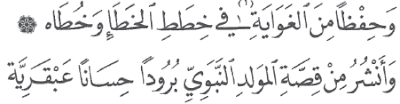 وَحِفْظًا مِنَ الغَوَايَةِ (١) فِي خِطَطِ الخَطَإِ وَخُطَاه ۞
وَأَنْشُرُ مِنْ قِصَّةِ المَوْلِدِ النَّبَوِيِّ بُرُودًا حِسَانًا عَبْقَرِيَّة